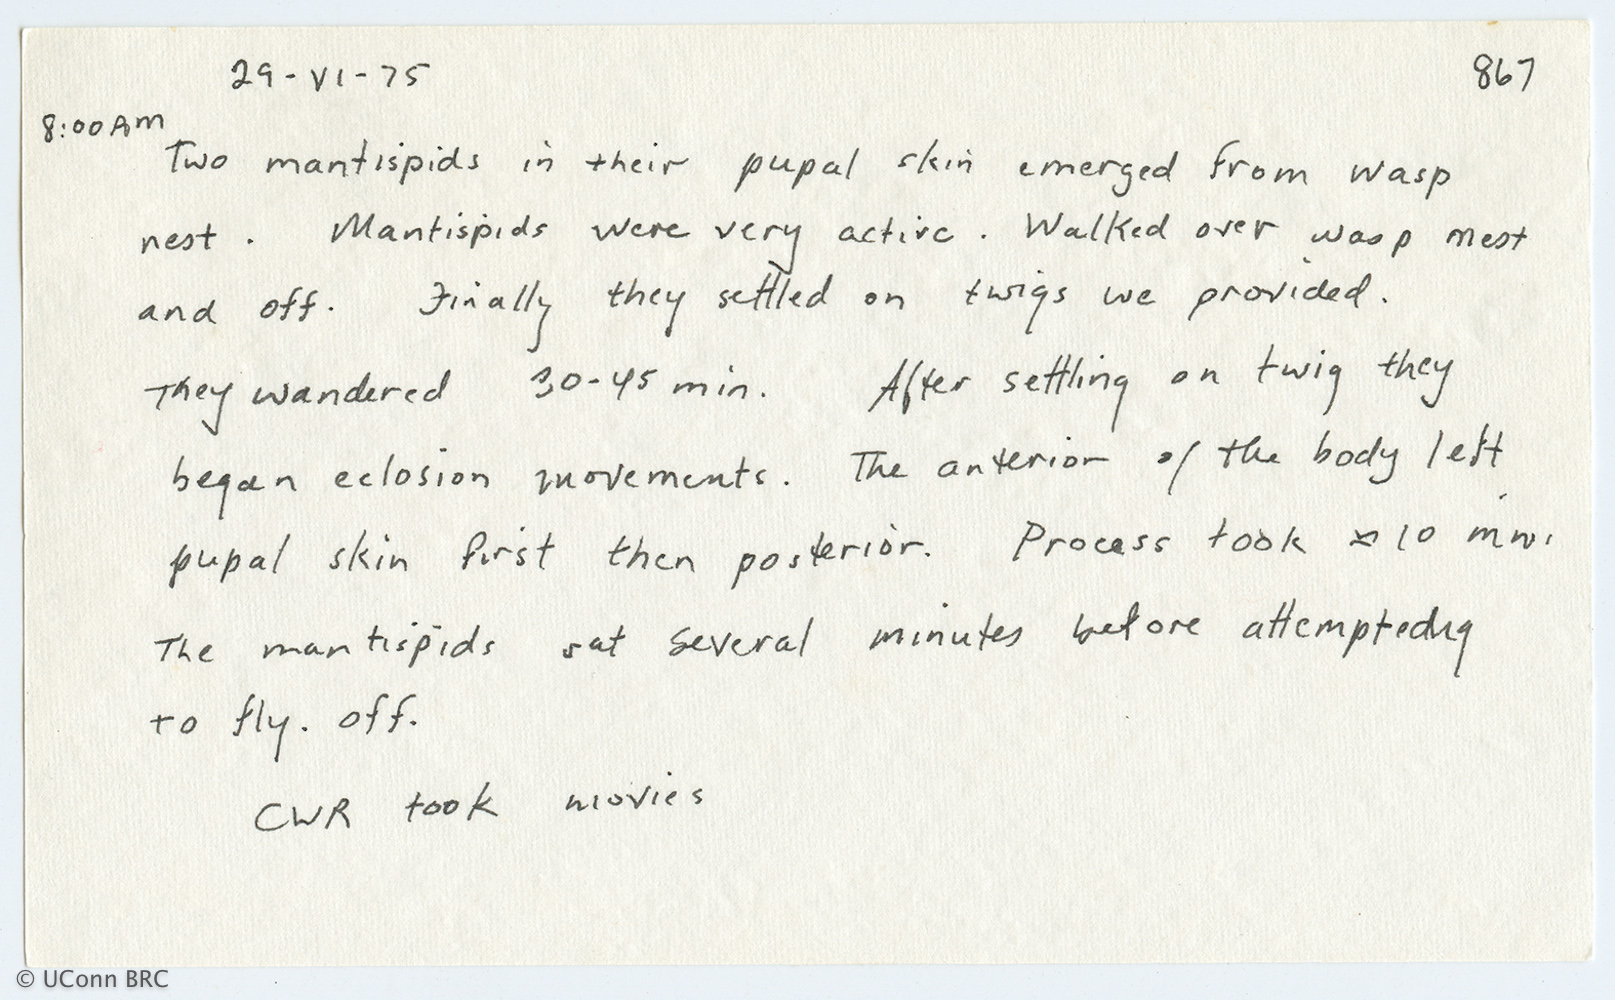 29-VI-75
867
8:00 AM
Two mantispids in their pupal skin emerged from wasp
nest. Mantispids were very active. Walked over wasp nest
and off. Finally they settled on twigs we provided.
They wandered 30-45 min. After settling on twig they
began eclosion movements. The anterior of the body left
pupal skin first then posterior. Process took ≈ 10 min.
The mantispids sat several minutes before
to fly. off.
CWR took movies
© UConn BRC